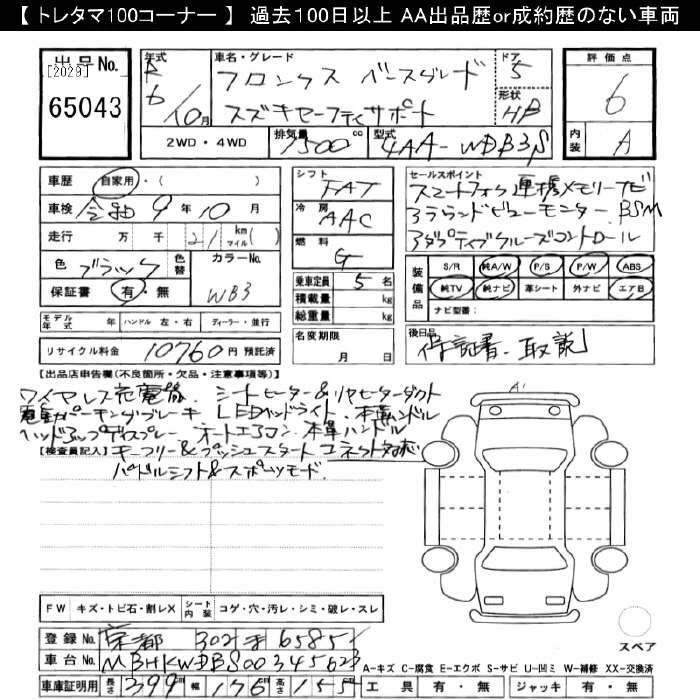 【 トレタマ100コーナー 】 過去100日以上 AA出品歴or成約歴のない車両
出品No. 年式 車名・グレード ドア 評価点
[2029] R フロンクス ベースグレード 5
65043 6/10月 スズキセーフティサポート 形状 HB 6
2WD・4WD 排気量 1500 cc 型式 4AA-WDB3S 内装 A
車歴 自家用・( ) シフト FAT セールスポイント
車検 令和 9年 10月 冷房 AAC スマートフォン連携メモリーナビ
走行 万 千 21 km マイル( ) アラウンドビューモンター BSM
色 ブラック 色替 カラーNo. WB3 燃料 G アダプティブクルーズコントロール
保証書 有・無 乗車定員 5名
積載量 kg
総重量 kg
装備品 S/R 純A/W P/S P/W ABS
純TV 純ナビ 革シート 外ナビ エアB
ナビ型番:
モデル年式 年 ハンドル 左・右 ディーラー・並行 名変期限 月 日 後日品
リサイクル料金 10760円 預託済 保証書、取説
【出品店申告欄(不良箇所・欠品・注意事項等)】
ワイヤレス充電器、シートヒーター&リヤヒーターダクト
電動パーキングブレーキ LEDヘッドライト、本革ハンドル
ヘッドアップディスプレー オートエアコン、本革ハンドル
【検査員記入】 キーフリー&プッシュスタート コネクト対応
パドルシフト&スポーツモード
A1
FW キズ・トビ石・割レX シート内装 コゲ・穴・汚レ・シミ・破レ・スレ
登録No. 京都 302 ま 6585
スペア
車台No. MBHKWDBS00345623
A-キズ C-腐食 E-エクボ S-サビ U-凹ミ W-補修 XX-交換済
車庫証明用 長さ 399 幅 176 高さ 155 工具 有・無 ジャッキ 有・無